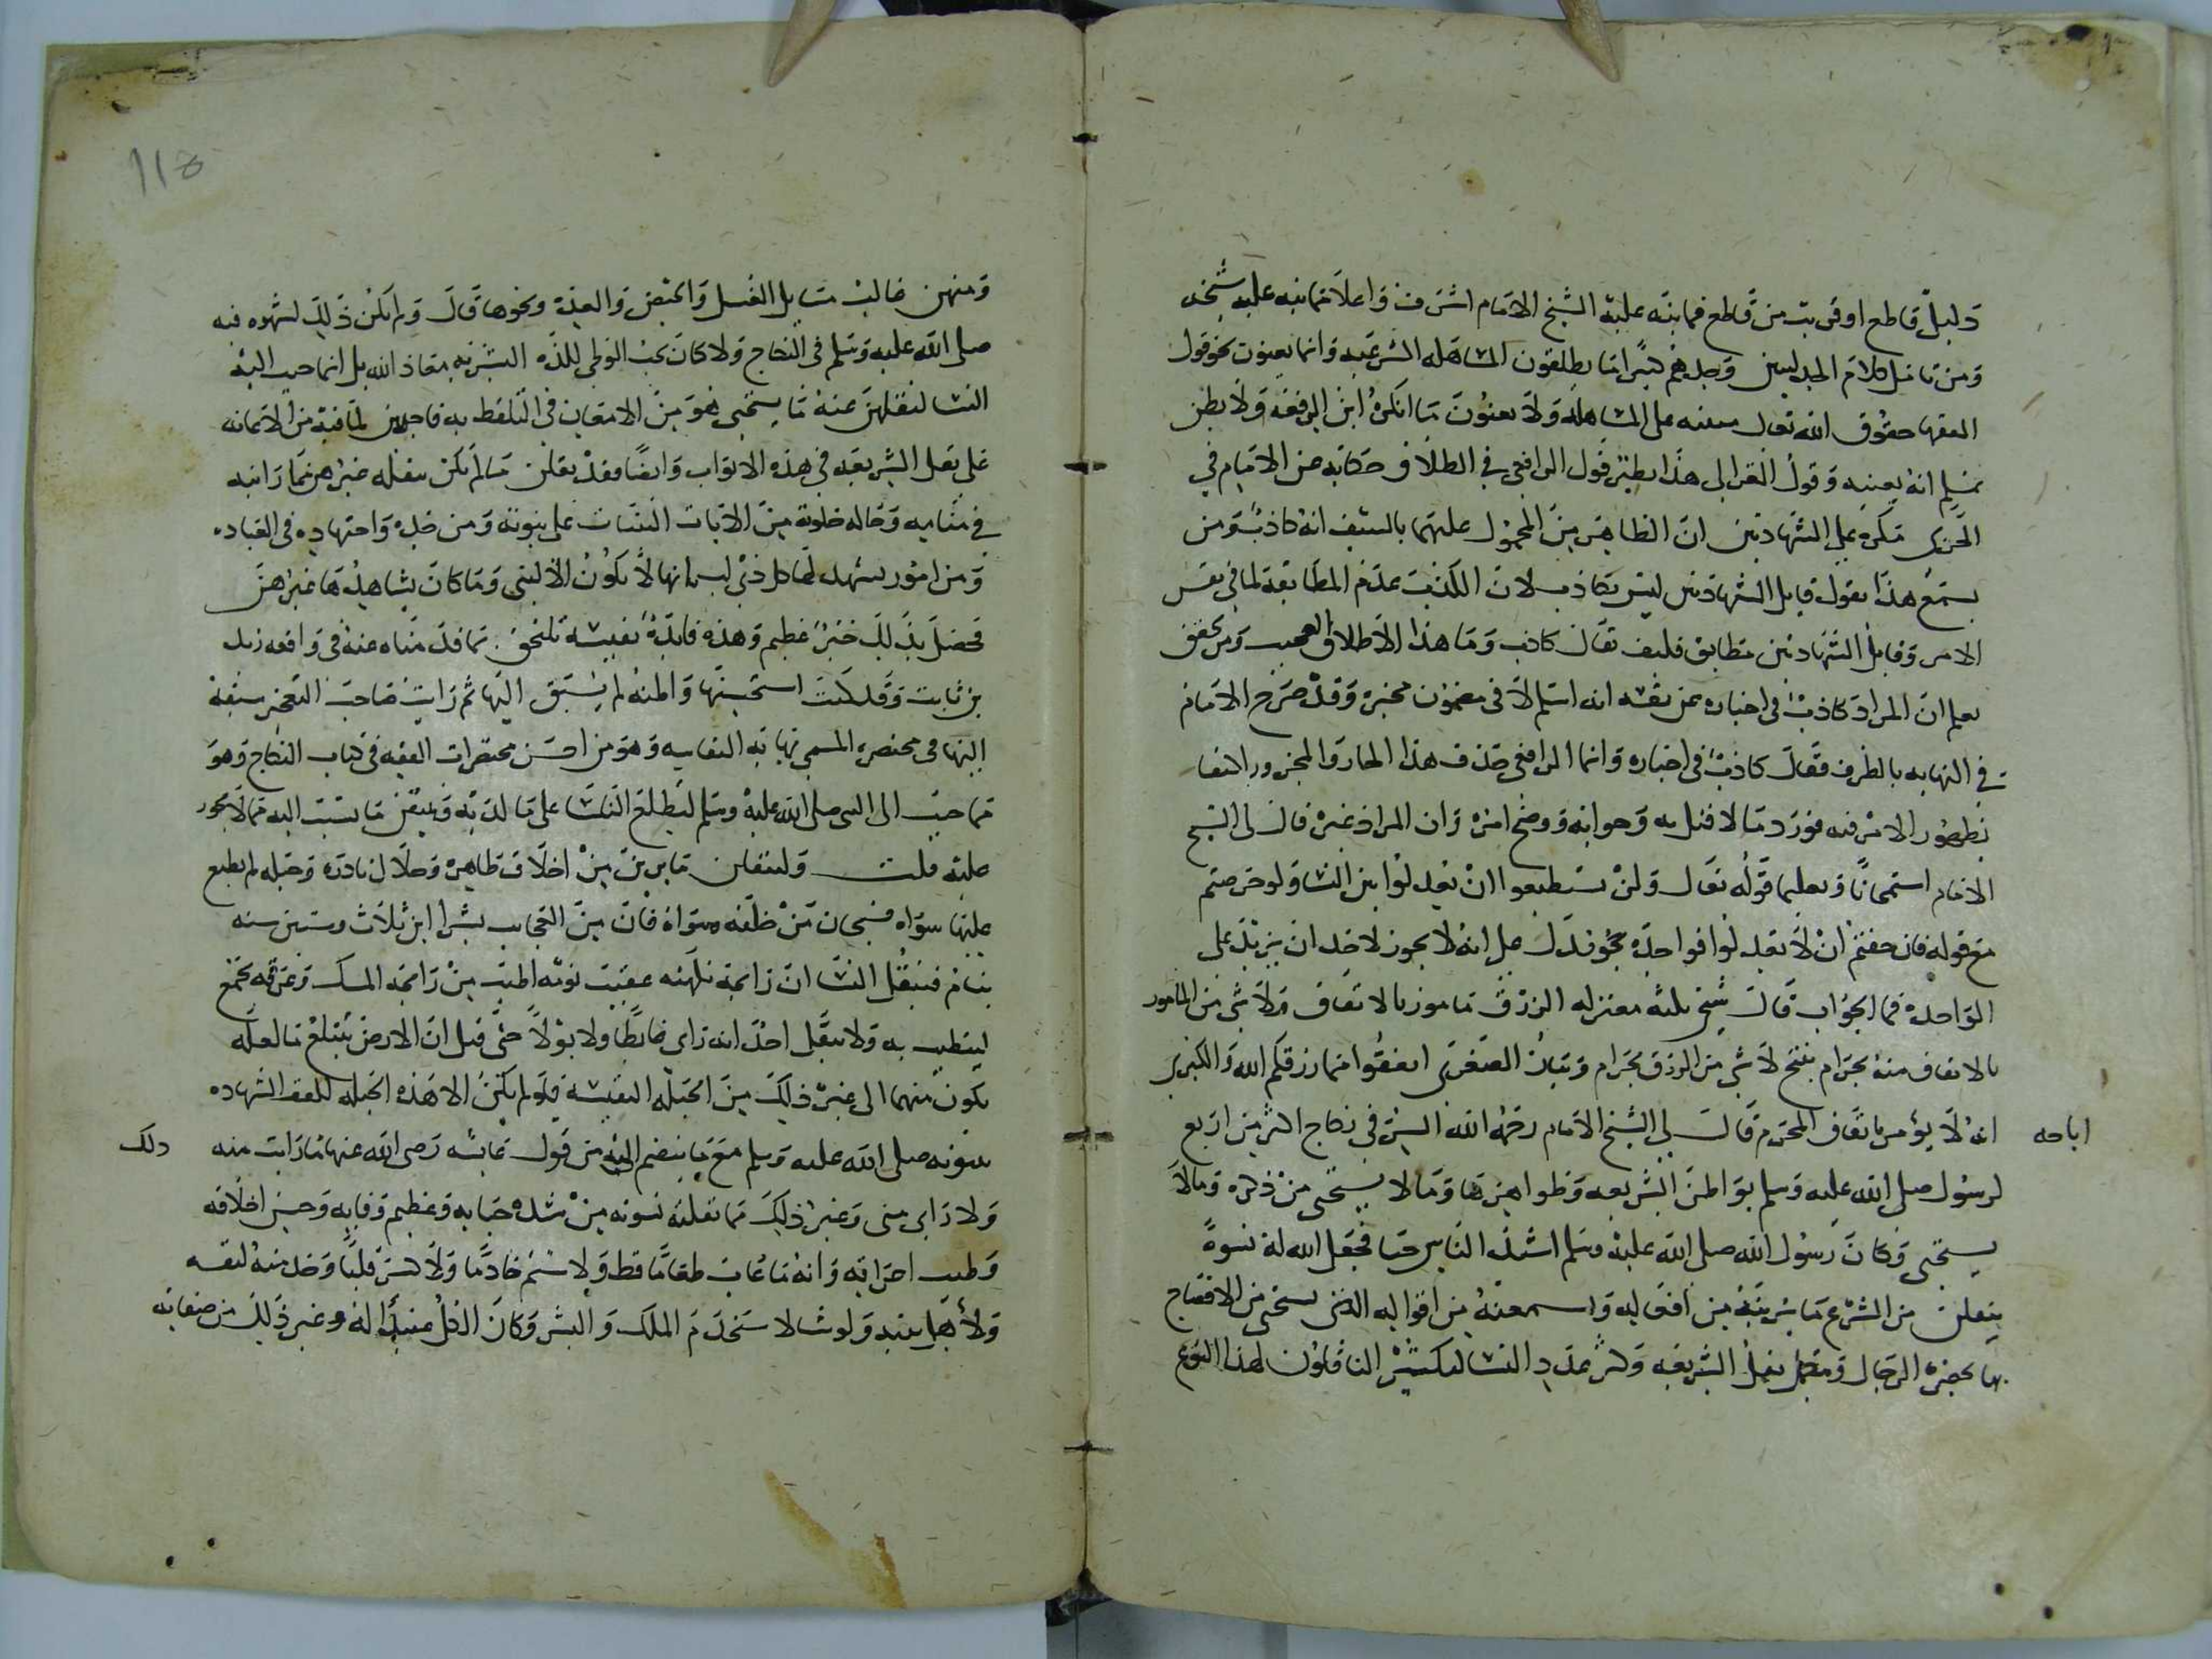 دليل قاطع او قريب من قاطع فما نبه عليه الشيخ الامام اشرف واعلا مما نبه عليه شيخه
ومن تامل كلام الجدليين وجدهم كثيرا ما يطلقون المساهله الشرعيه وانما يعنون نحو قول
الفقها حقوق الله تعالى مبنيه على المساهله ولا يعنون ما انكره ابن الرفعه ولا يظن
بمسلم انه يعنيه وقول الغزالى هذا نظير قول الرافعي في الطلاق حكايه عن الامام في
الحربى مكره على الشهادتين ان الظاهر من المحمول عليهما بالسيف انه كاذب ومن
يسمع هذا يقول قايل الشهادتين ليس بكاذب لان الكذب عدم المطابقة لما في نفس
الامر وقايل الشهادتين مطابق فكيف يقال كاذب وما هذا الاطلاق العجيب ومن تحقق
يعلم ان المراد كاذب في اخباره عن نفسه انه اسلم لا في مضمون مخبره وقد صرح الامام
في النهايه بالطرف فقال كاذب في اخباره وانما الرافعي حذف هذا الجار والمجرور اكتفا
بظهور الامر فيه فورد ما لا قبل به وجوابه ووضح امره وان المراد غيره قال لى الشيخ
الامام استمحانا وتعليما قوله تعالى ولن تستطيعوا ان تعدلوا بين النسا ولو حرصتم
مع قوله فان خفتم ان لا تعدلوا فواحدة يدل على انه لا يجوز لاحد ان يزيد على
الواحدة فما الجواب قال شيخ مسلة معتزله الرزق مامور بالانفاق ولا شي من المامور
بالانفاق منه بحرام ينتج لا شي من الرزق بحرام وبيان الصغرى انفقوا مما رزقكم الله والكبرى
انه لا يؤمر بانفاق المحرم قال لي الشيخ الامام رحمه الله السر في نكاح اكثر من اربع
اباحه
لرسول الله صلى الله عليه وسلم بواطن الشريعه وظواهرها وما لا يستحى من ذكره وما لا
يستحى وكان رسول الله صلى الله عليه وسلم اشد الناس حيا فجعل الله له نسوة
ينقلن من الشرع ما يرينه من افعاله ويسمعنه من اقواله التى يستحى من الافصاح
بها بحضرة الرجال فيكمل نقل الشريعه وكثر عدد النسا لتكثير الناقلون لهذا النوع
ومنهن غالب مسايل الغسل والحيض والعدة ونحوها قال ولم يكن ذلك لشهوه فيه
صلى الله عليه وسلم في النكاح ولا كان يحب الوطي للذه البشريه معاذ الله بل انما حبب اليه
النسا لنقلهن عنه ما يستحى هو من الامعان فى التلفظ به فاحبهن لما فيه من الاعانه
على نقل الشريعه في هذه الابواب وايضا فقد نقلن ما لم يكن ينقله غيرهن مما راينه
في منامه وحاله خلوته من الايات البينات على نبوته ومن جده واجتهاده في العباده
ومن امور يشهد لها كل ذى لب انها لا تكون الا لنبي وما كان يشاهدها غيرهن
فحصل بذلك خير عظيم وهذه فائدة نفيسة تلتحق بما قدمناه عنه في واقعه زيد
بن ثابت وقد كنت استحسنها واظنه لم يسبق اليها ثم رايت صاحب التعجيز سبقه
اليها في مختصره المسمى نهايه النفاسه وهو من احسن مختصرات الفقه في كتاب النكاح وهو
مما حبب الى النبى صلى الله عليه وسلم لتطلع النسا على ما لديه وينتفى ما ينسب اليه مما لا يجوز
عليه قلت ولينقلن ما يرين من اخلاق طاهرة وخلال نادره وجبله لم يطبع
عليها سواه فسبحان من خلقه وسواه فان من العجايب بشرا ابن ثلاث وستين سنه
ينام فتنقل النسا ان رائحة نكهته عقيب نومه اطيب من رايحه المسك وعرقه يجمع
ليتطيب به ولا ينقل احد انه راى غايطا ولا بولا حتى قيل ان الارض تبتلع ما لعله
يكون منهما الى غير ذلك من الجبله النفيسة فلو لم يكن الا هذه الجبله لكفت الشهاده
بنبوته صلى الله عليه وسلم مع ما ينضم اليه من قول عايشه رضى الله عنها ما رايت منه
ذلك
ولا راى منى وغير ذلك مما نقلته نسوته من شده حيايه وعظيم وفايه وحسن اخلاقه
وطيب اعراقه وانه ما عاب طعاما قط ولا شتم خادما ولا كسر قلبا وخدمته لنفسه
ولاهل بيته ولو شا لاستخدم الملك والبشر وكان الكل عبيدا له وغير ذلك من صفاته
118